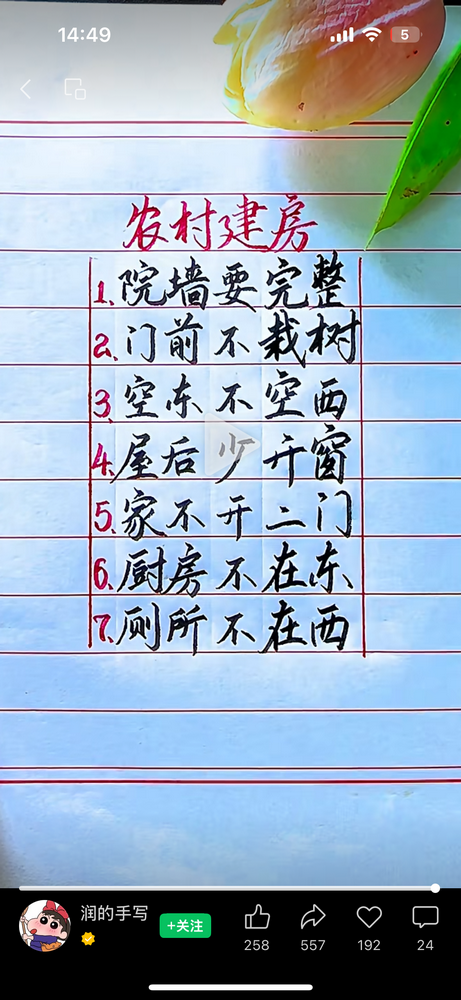 14:49
5
农村建房
1、院墙要完整
2、门前不栽树
3、空东不空西
4、屋后少开窗
5、家不开二门
6、厨房不在东
7、厕所不在西
润的手写
+关注
258
557
192
24